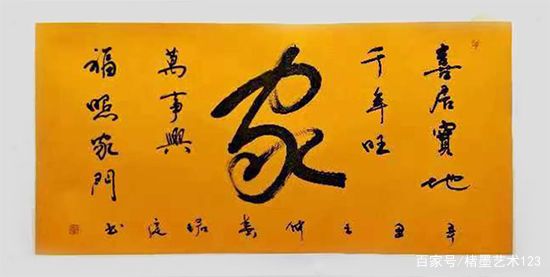 喜居寶地
千年旺
家
萬事興
福照家門
辛丑仲春书
百家号/楮墨艺术123